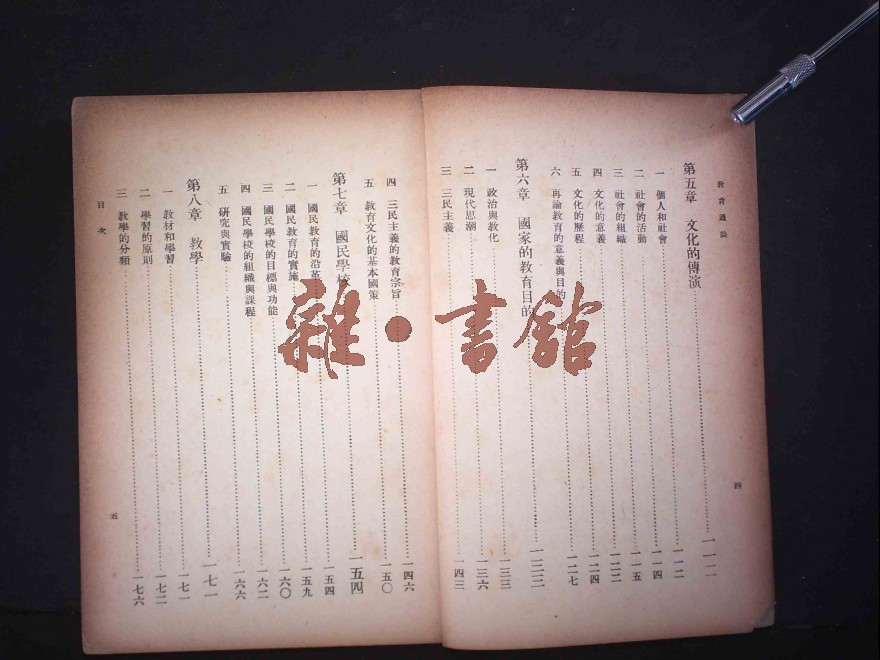 教育通論
第五章　文化的傳演……一一一
一　個人和社會……一一二
二　社會的活動……一一四
三　社會的組織……一一五
四　文化的意義……一二二
五　文化的歷程……一二四
六　再論教育的意義與目的……一二七
第六章　國家的教育目的……一三三
一　政治與教化……一三三
二　現代思潮……一三六
三　三民主義……一四三
四
四　三民主義的教育宗旨……一四六
五　教育文化的基本國策……一五〇
第七章　國民學校……一五四
一　國民教育的沿革……一五四
二　國民教育的實施……一五九
三　國民學校的目標與功能……一六〇
四　國民學校的組織與課程……一六二
五　研究與實驗……一六六
第八章　教學……一七一
一　教材和學習……一七一
二　學習的原則……一七二
三　教學的分類……一七六
目次
五
雜·書館